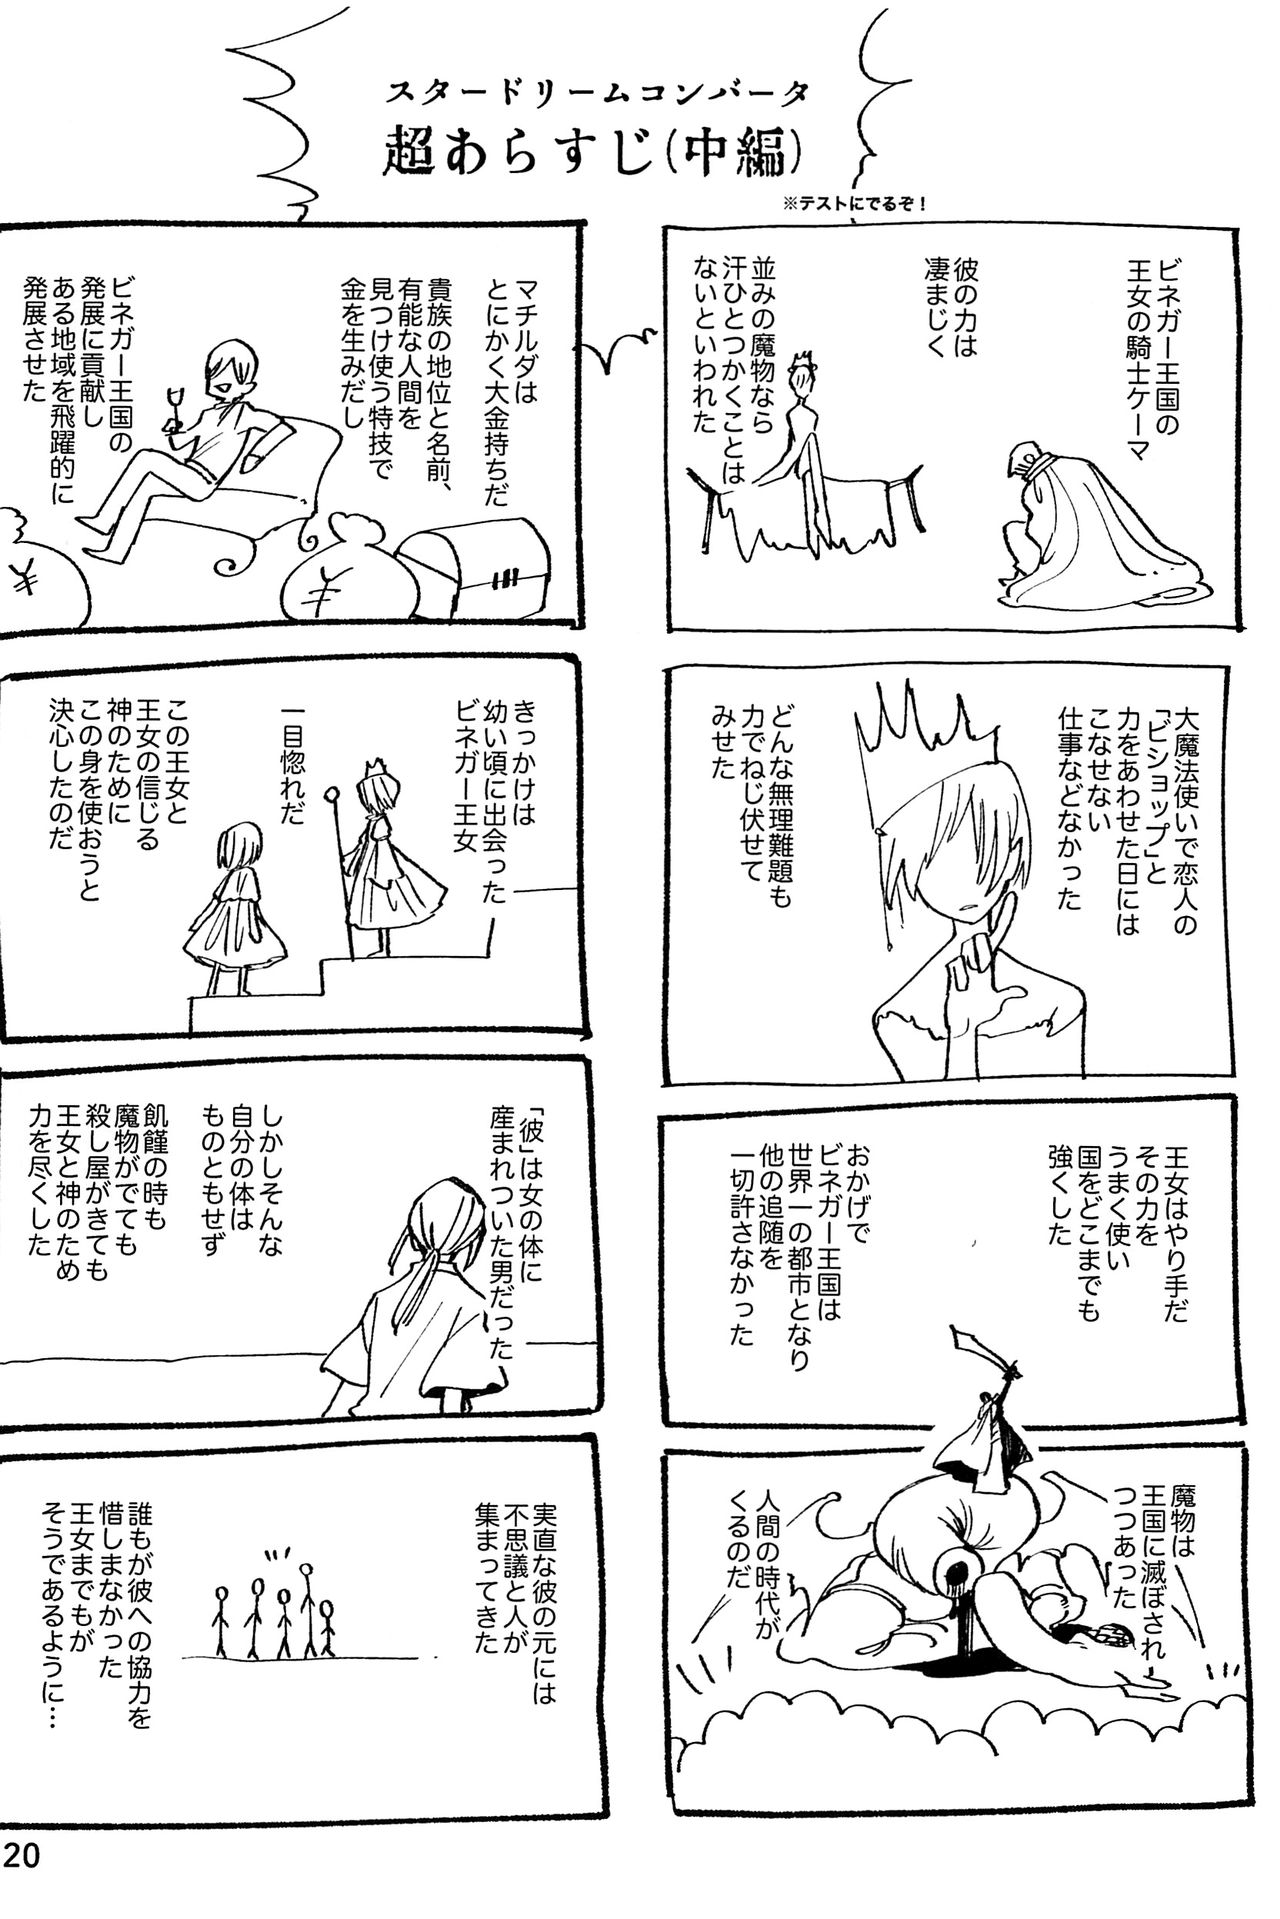 スタードリームコンバータ
超あらすじ(中編)
※テストにでるぞ！
ビネガー王国の
王女の騎士ケーマ
彼の力は
凄まじく
並みの魔物なら
汗ひとつかくことは
ないといわれた
大魔法使いで恋人の
「ビショップ」と
力をあわせた日には
こなせない
仕事などなかった
どんな無理難題も
力でねじ伏せて
みせた
王女はやり手だ
その力を
うまく使い
国をどこまでも
強くした
おかげで
ビネガー王国は
世界一の都市となり
他の追随を
一切許さなかった
魔物は
王国に滅ぼされ
つつあった
人間の時代が
くるのだ
マチルダは
とにかく大金持ちだ
貴族の地位と名前、
有能な人間を
見つけ使う特技で
金を生みだし
ビネガー王国の
発展に貢献し
ある地域を飛躍的に
発展させた
きっかけは
幼い頃に出会った
ビネガー王女
一目惚れだ
この王女と
王女の信じる
神のために
この身を使おうと
決心したのだ
「彼」は女の体に
産まれついた男だった
しかしそんな
自分の体は
ものともせず
飢饉の時も
魔物がでても
殺し屋がきても
王女と神のため
力を尽くした
実直な彼の元には
不思議と人が
集まってきた
誰もが彼への協力を
惜しまなかった
王女までもが
そうであるように…
20